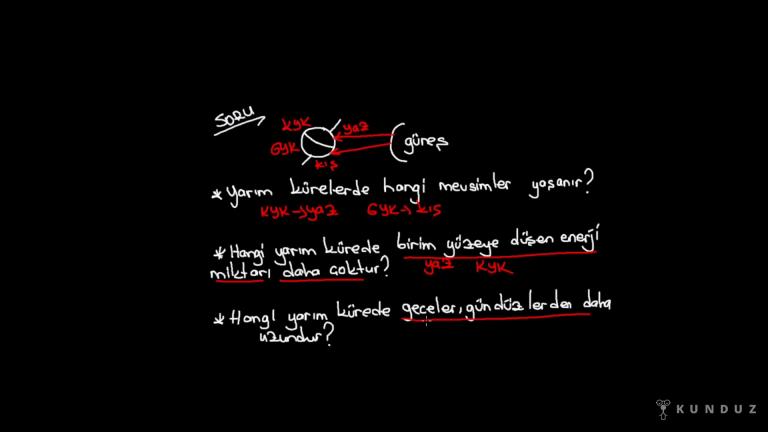 SORU
KYK
yaz
GYK
güneş
kış
* Yarım kürelerde hangi mevsimler yaşanır?
KYK → yaz GYK → kış
* Hangi yarım kürede birim yüzeye düşen enerji
miktarı daha çoktur? yaz KYK
* Hangi yarım kürede geceler, gündüzlerden daha
uzundur?
KUNDUZ